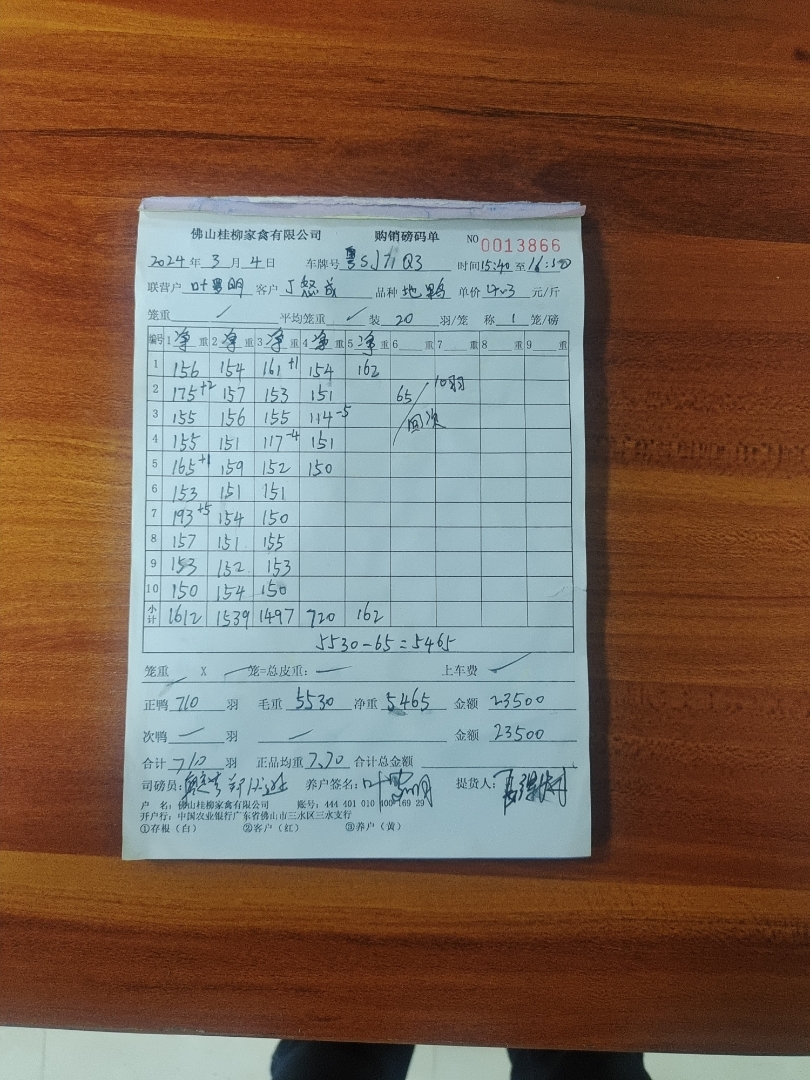 佛山桂柳家禽有限公司 购销磅码单 NO 0013866
2024年 3 月 4 日 车牌号 粤S Q3 时间15:40至16:50
联营户 叶 明 客户 丁 品种 地鸭 单价 4.3 元/斤
笼重 ✓ 平均笼重 ✓ 装 20 羽/笼 称 1 笼/磅
编号 1 净 重 2 净 重 3 净 重 4 净 重 5 净 重 6 重 7 重 8 重 9 重
1 156 154 161+1 154 162
2 175+2 157 153 151 65/10羽
3 155 156 155 114-5 回次
4 155 151 117-4 151
5 165+1 159 152 150
6 153 151 151
7 193+5 154 150
8 157 151 155
9 153 152 153
10 150 154 150
小计 1612 1539 1497 720 162
5530-65=5465
笼重 X 笼=总皮重: 上车费 ✓
正鸭 710 羽 毛重 5530 净重 5465 金额 23500
次鸭 羽 金额 23500
合计 710 羽 正品均重 7.70 合计总金额
司磅员: 养户签名: 叶 明 提货人:
户 名: 佛山桂柳家禽有限公司 账号: 444 401 010 400 169 29
开户行: 中国农业银行广东省佛山市三水区三水支行
①存根（白） ②客户（红） ③养户（黄）